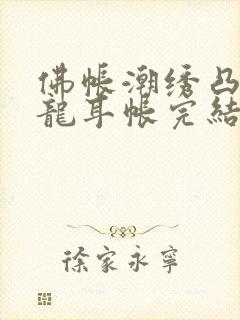 佛帐潮绣凸
龍耳帐完結
徐家永寧